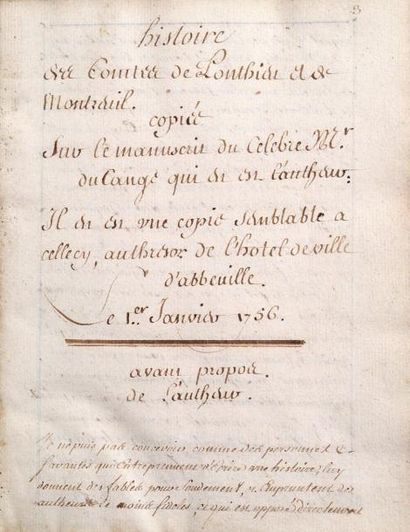 3
histoire
des Comtes de Ponthieu et de
Montreuil.
copiée
Sur le manuscrit du Celebre Mr
du Cange qui en est l'autheur.
Il en est une copie semblable a
cellecy, authresor de l'hotel de ville
d'abbeville.
Le 1.er Janvier 1756.
avant propos
de l'autheur.
Je nepuis pas concevoir comme des personnes
sçavantes qui Entreprennent d'écrire une histoire, luy
donnent des fables pour fondement, & Empruntent des
autheurs le moins fideles, ce qui est opposé directement